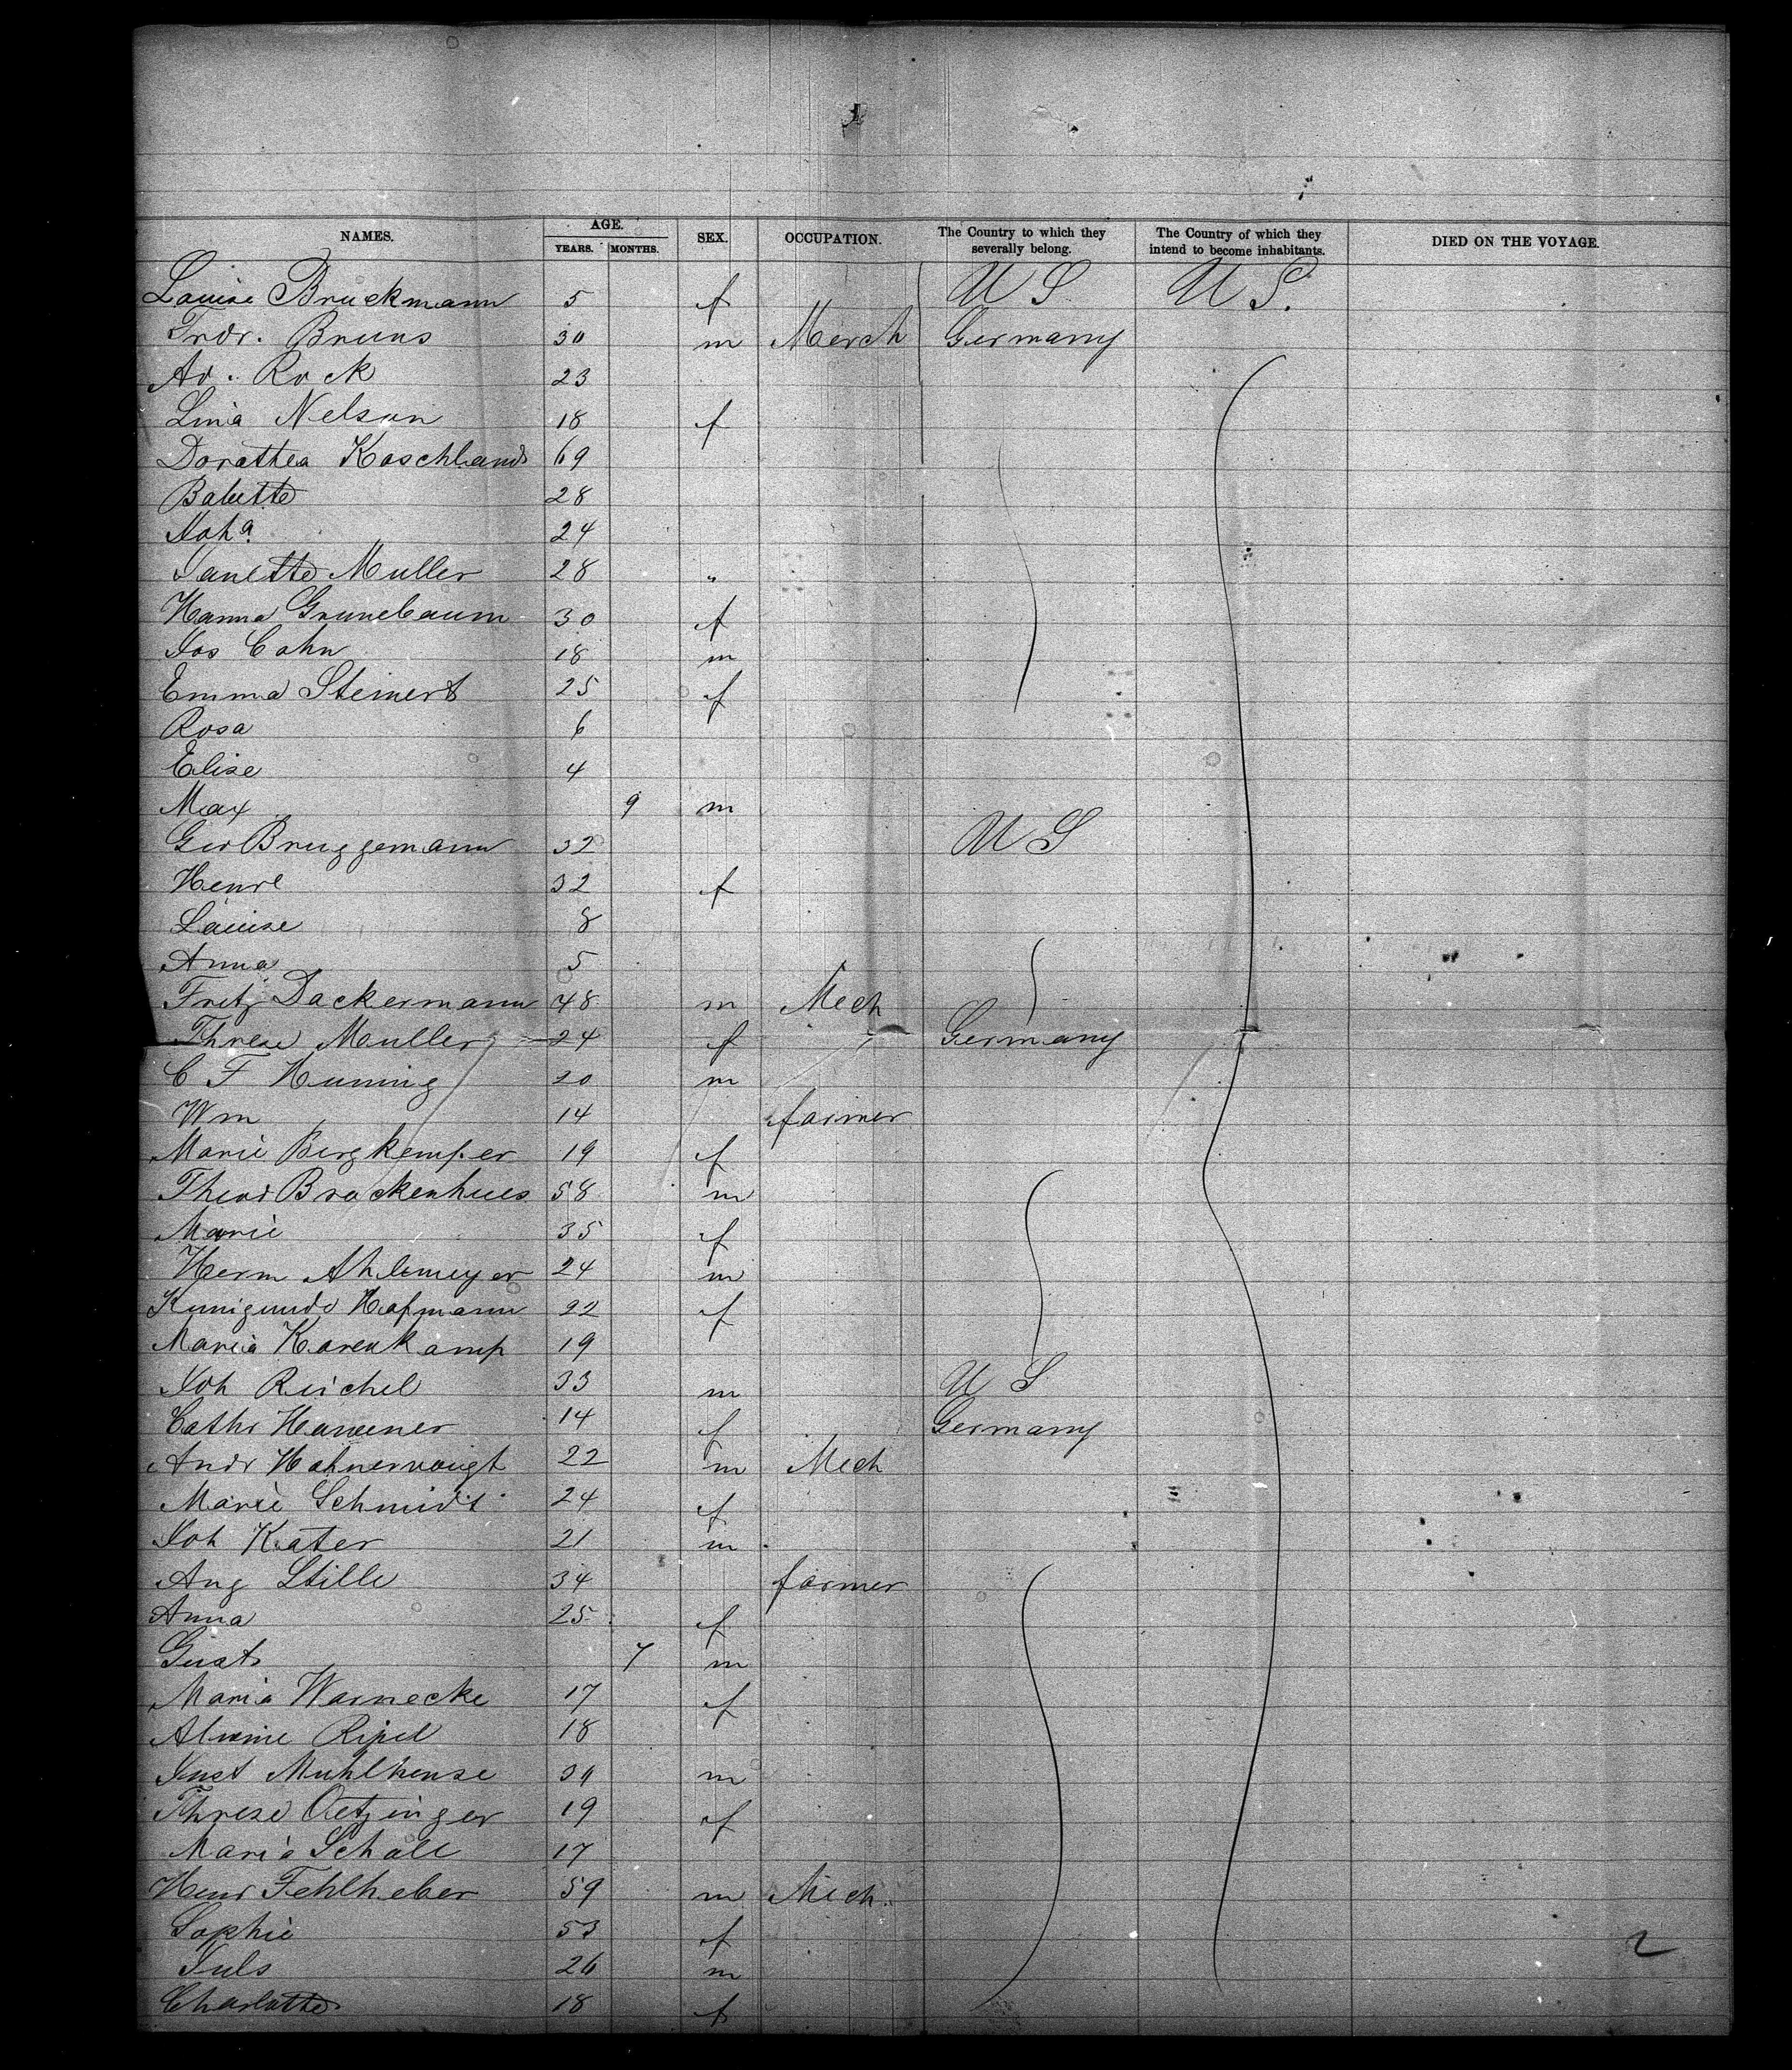 NAMES. AGE. YEARS. MONTHS. SEX. OCCUPATION. The Country to which they severally belong. The Country of which they intend to become inhabitants. DIED ON THE VOYAGE.
Louise Bruckmann 5 f U S U S.
Frdr. Bruns 30 m Merch Germany
Ad. Rock 23
Lina Nelson 18 f
Dorothea Koschland 69
Babette 28
Joha 24
Janette Muller 28 "
Hanna Grunebaum 30 f
Jos Cohn 18 m
Emma Steinert 25 f
Rosa 6
Elise 4
Max 9 m
Geo Bruggemann 32 U S
Henre 32 f
Louise 8
Anna 5
Fritz Dackermann 48 m Mech
Threse Muller 24 f Germany
C F Huning 20 m
Wm 14 farmer
Marie Bergkemper 19 f
Theod Brockenhues 58 m
Marie 35 f
Herm Ahlemeyer 24 m
Kunigunde Hofmann 22 f
Maria Karenkamp 19
Joh Reichel 33 m U S
Cathr 14 f Germany
Andr Hohnervoigt 22 m Mech
Marie Schmidt 24 f
Joh Kater 21 m
Aug Stille 34 farmer
Anna 25 f
Gust 7 m
Maria Warnecke 17 f
Alwine Ripel 18
Just Muhlhense m
Threse Oetzinger 19 f
Maria Schall 17
Henr Fehlheber 59 m Mech.
Sophie 53 f
Juls 26 m
Charlotte 18 f
2